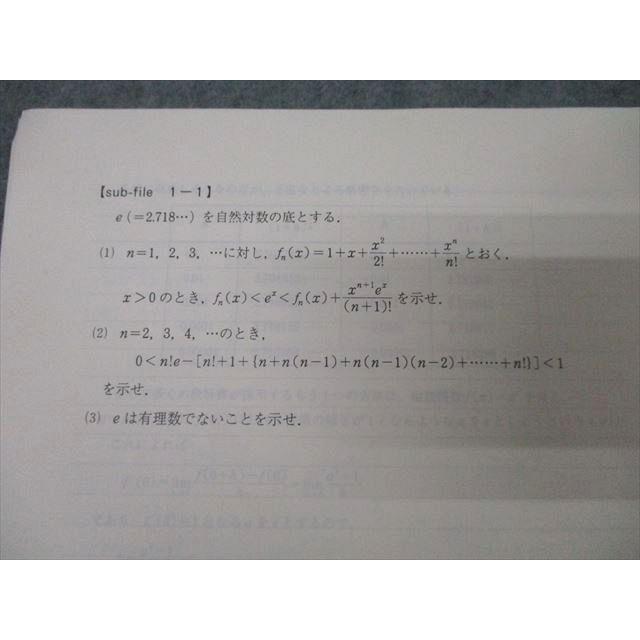 【sub-file 1-1】
e(=2.718…)を自然対数の底とする.
(1) n=1, 2, 3, …に対し, fₙ(x)=1+x+x²/2!+……+xⁿ/n! とおく.
x>0のとき, fₙ(x)<eˣ<fₙ(x)+xⁿ⁺¹eˣ/(n+1)! を示せ.
(2) n=2, 3, 4, …のとき,
0<n!e-[n!+1+{n+n(n-1)+n(n-1)(n-2)+……+n!}]<1
を示せ.
(3) eは有理数でないことを示せ.